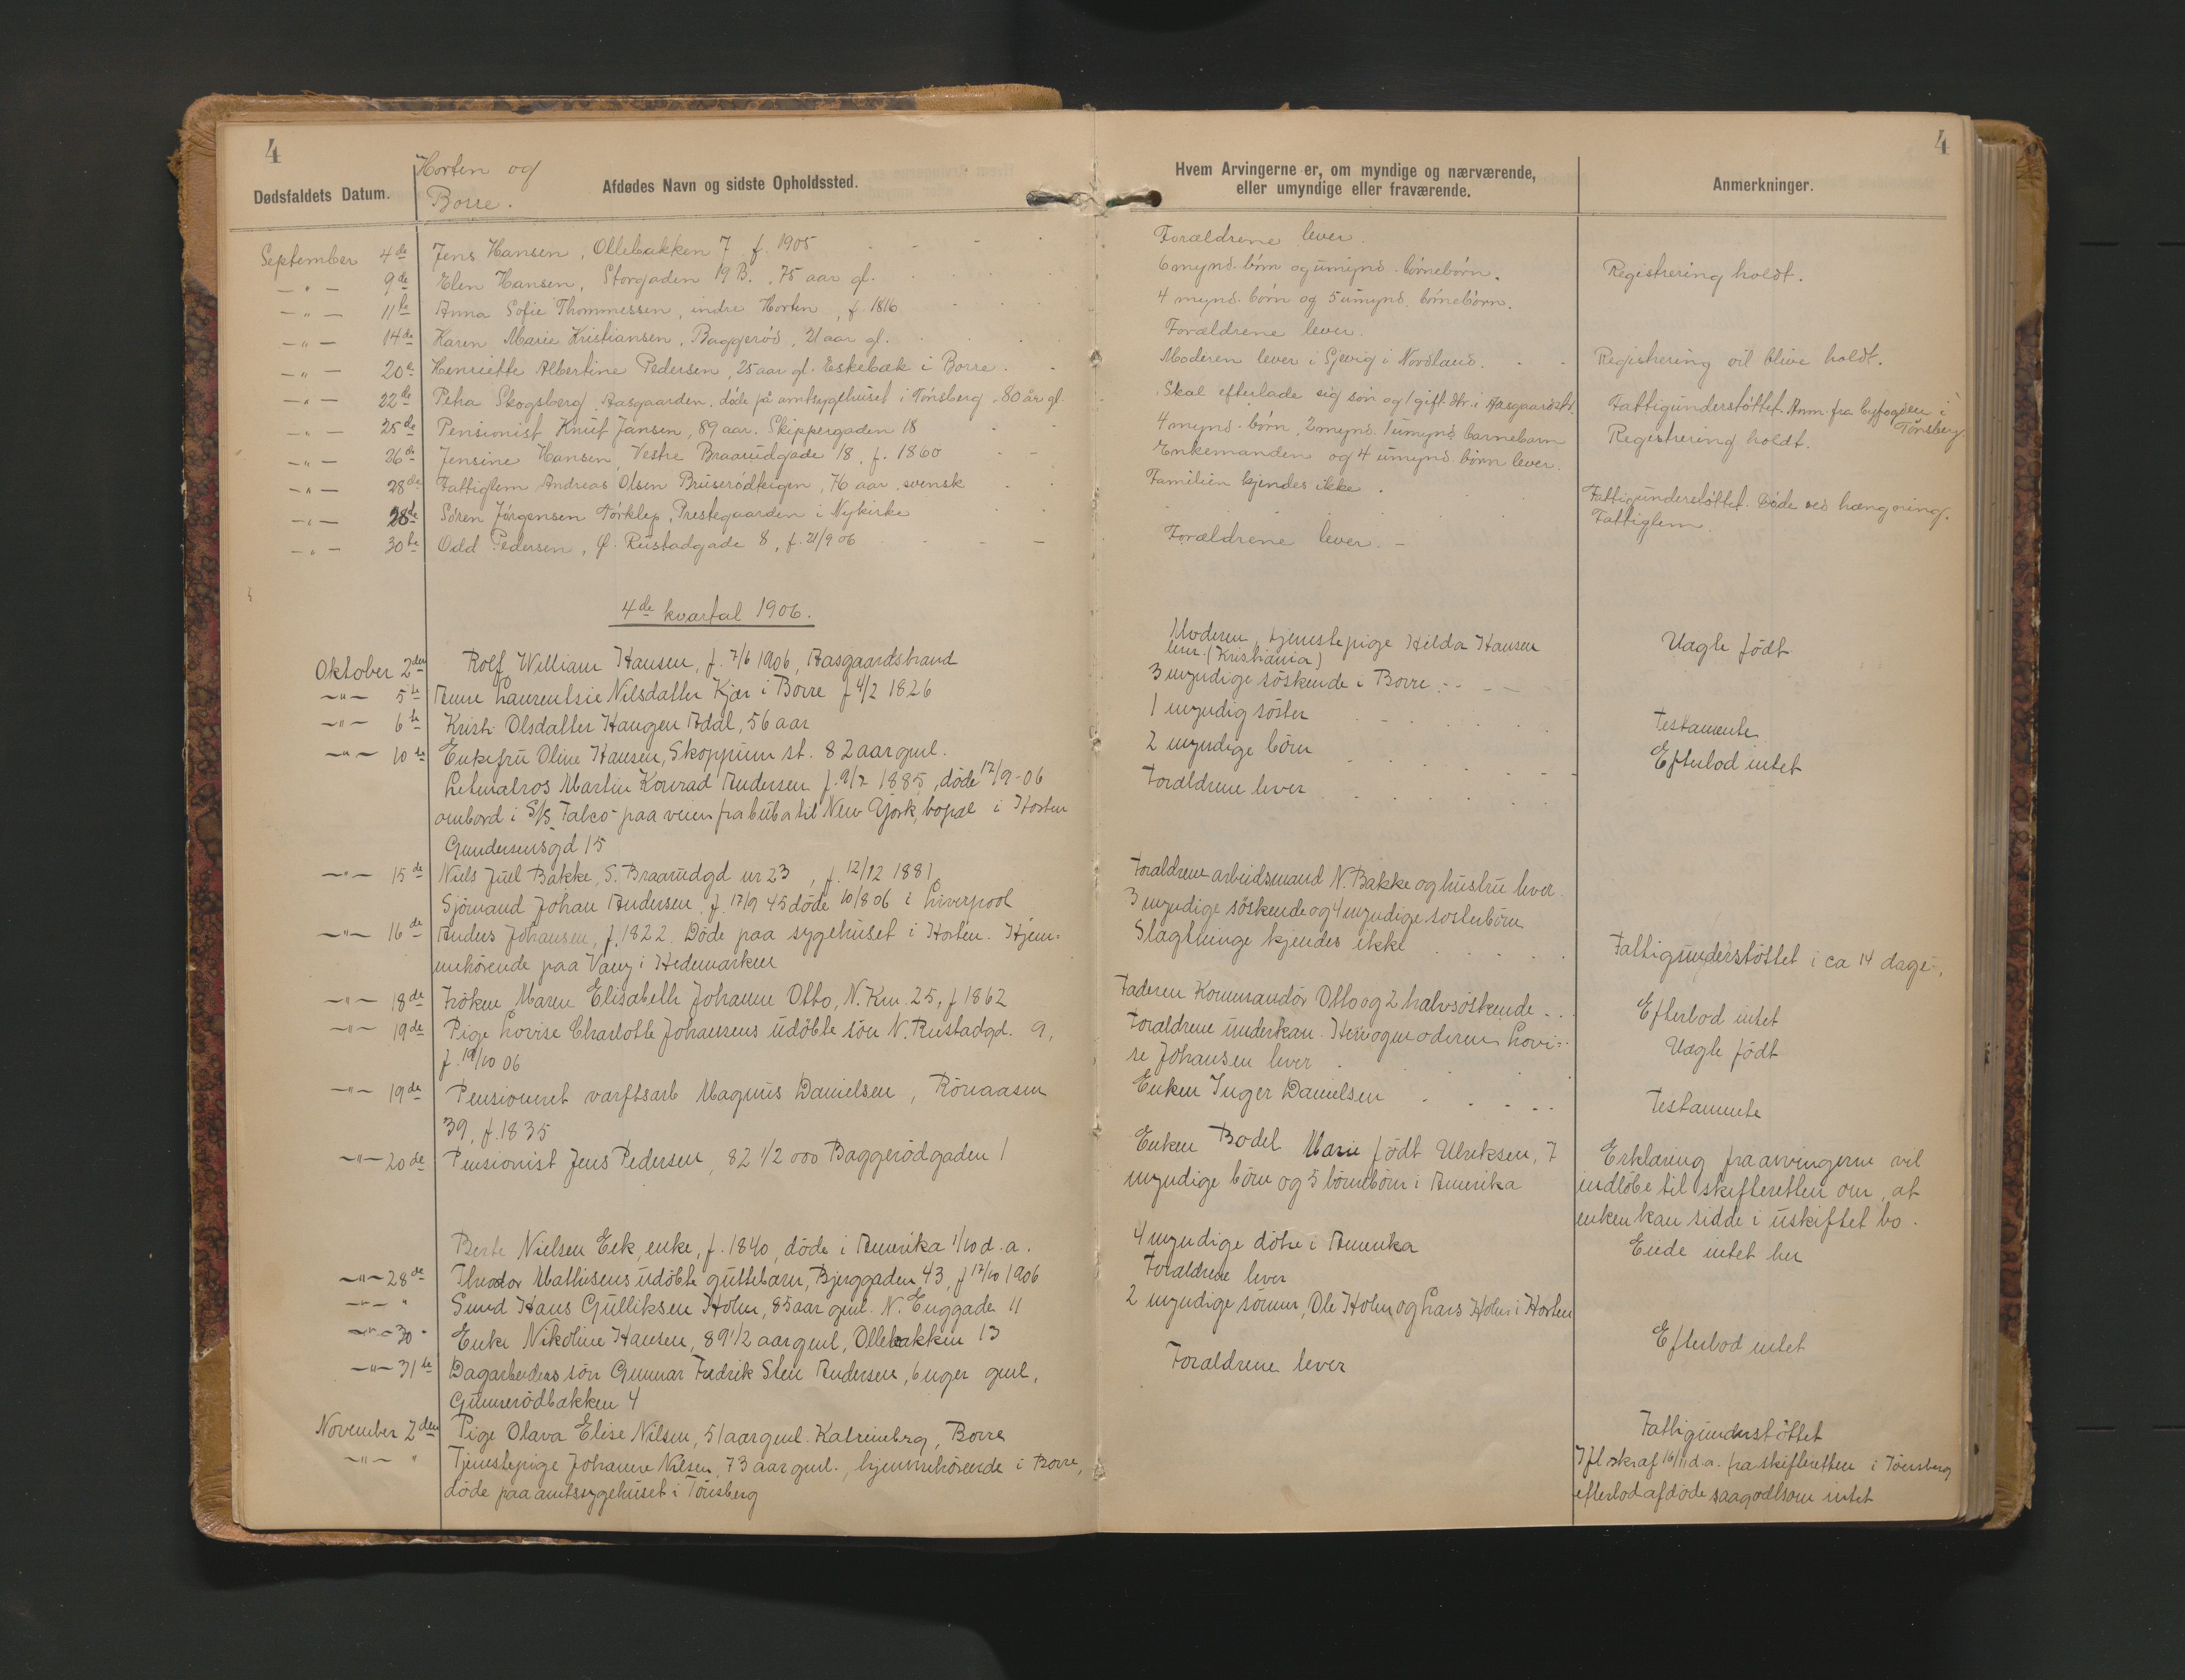 4
4
Horten og
Borre.
Dødsfaldets Datum.
Afdødes Navn og sidste Opholdssted.
Hvem Arvingerne er, om myndige og nærværende,
eller umyndige eller fraværende.
Anmerkninger.
September 4de Jens Hansen, Ollebakken 7 f. 1905 Forældrene lever.
-"- 9de Elen Hansen, Storgaden 19 B., 75 aar gl. 6 mynd. børn og umynd. børnebørn. Registrering holdt.
-"- 11te Anna Sofie Thommessen, indre Horten, f. 1816 4 mynd. børn og 5 umynd. børnebørn.
-"- 14de Karen Marie Kristiansen, Baggerød, 21 aar gl. Forældrene lever.
-"- 20de Henriette Albertine Pedersen, 25 aar gl. Eskebæk i Borre. Moderen lever i Gjevig i Nordland. Registrering vil blive holdt.
-"- 22de Petra Skogsberg, Aasgaarden, døde på amtsygehuset i Tønsberg, 80 år gl. Skal efterlade sig søn og 1 gift dtr. i Aasgaardstr. Fattigunderstøttet. Anm. fra byfogden i
Tønsberg.
-"- 25de Pensionist Knut Jansen, 89 aar. Skippergaden 18 4 mynd. børn, 2 mynd. 1 umynd. barnebarn Registrering holdt.
-"- 26de Jensine Hansen, Vestre Braarudgade 18, f. 1860 Enkemanden og 4 umynd. børn lever.
-"- 28de Fattiglem Andreas Olsen Bruserødteigen, 76 aar, svensk Familien kjendes ikke. Fattigunderstøttet. Døde ved hængning.
-"- 28de Søren Jørgensen Tørklep, Prestegaarden i Nykirke Fattiglem.
-"- 30te Odd Pedersen, Ø. Rustadgade 8, f. 21/9 06 Forældrene lever.
4de kvartal 1906.
Oktober 2den Rolf William Hansen, f. 7/6 1906, Aasgaardstrand Moderen, tjenestepige Hilda Hansen Uægte født
lever. (Kristiania)
-"- 5te Anne Laurentsie Nilsdatter Kjær i Borre f 4/2 1826 3 myndige søskende i Borre
-"- 6te Kristi Olsdatter Haugen Adal, 56 aar 1 myndig søster Testamente
-"- 10de Enkefru Oline Hansen, Skoppum st. 82 aar gml. 2 myndige børn Efterlod intet
Letmatros Martin Konrad Andersen f. 9/2 1885, døde 12/9-06 Forældrene lever
ombord i S/S Falco paa veien fra Cuba til New York, bopæl i Horten
Gundersensgd 15
-"- 15de Niels Juel Bakke, S. Braarudgd nr 23, f. 12/12 1881 Forældrene arbeidsmand N. Bakke og hustru lever.
Sjømand Johan Andersen, f. 17/9 45 døde 10/8 06 i Liverpool 3 myndige søskende og 4 myndige søsterbørn
-"- 16de Anders Johansen, f. 1822. Døde paa sygehuset i Horten. Hjem= Slægtninge kjendes ikke Fattigunderstøttet i ca 14 dage.
mehørende paa Vang i Hedemarken
-"- 18de Frøken Maren Elisabeth Johanne Otto, N. Km. 25, f 1862 Faderen Kommandør Otto og 2 halvsøskende Efterlod intet
-"- 19de Pige Lovise Charlotte Johansens udøbte søn N. Rustadgd. 9, Forældrene underkan. Hem og moderen Lovi= Uægte født
f. 19/10 06 se Johansen lever
-"- 19de Pensioneret varftsarb Magnus Danielsen, Rønaasen Enken Inger Danielsen Testamente
39, f. 1835
-"- 20de Pensionist Jens Pedersen, 82 1/2 Baggerødgaden 1 Enken Bodel Marie født Ulriksen, 7 Erklæring fra arvingerne vil
myndige børn og 5 børnebørn i Amerika indløbe til skifteretten om, at
enken kan sidde i uskiftet bo.
Berte Nielsen Eek, enke, f. 1840, døde i Amerika 1/10 d. a. 4 myndige døtre i Amerika Eiede intet her
-"- 28de Theodor Mathisens udøbte guttebarn, Bjerggaden 43, f 12/10 1906 Forældrene lever
-"- " Smed Hans Gulliksen Holm, 85 aar gml. N. Enggade 11 2 myndige sønner, Ole Holm og Lars Holm i Horten
-"- 30 " Enke Nikoline Hansen, 89 1/2 aar gml, Ollebakken 13 Efterlod intet
-"- 31te Dagarbeiders søn Gunnar Fredrik Sten Andersen, 6 uger gml, Forældrene lever
Gunnerødbakken 4
November 2den Pige Olava Elise Nilsen, 51 aar gml. Katrineberg, Borre Fattigunderstøttet
-"- " Tjenestepige Johanne Nilsen, 73 aar gml., hjemmehørende i Borre, Ifl skr af 16/11 d. a. fra skifteretten i Tønsberg
døde paa amtssygehuset i Tønsberg efterlod afdøde saagodtsom intet